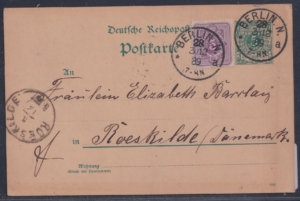 Deutsche Reichspost
Postkarte
BERLIN, N.
28
3/12
89
7-8N
a
BERLIN, N.
28
3/12
89
7-8N
a
An
Fräulein Elizabeth Barclay
in
Roeskilde (Dänemark)
ROESKILDE
Wohnung